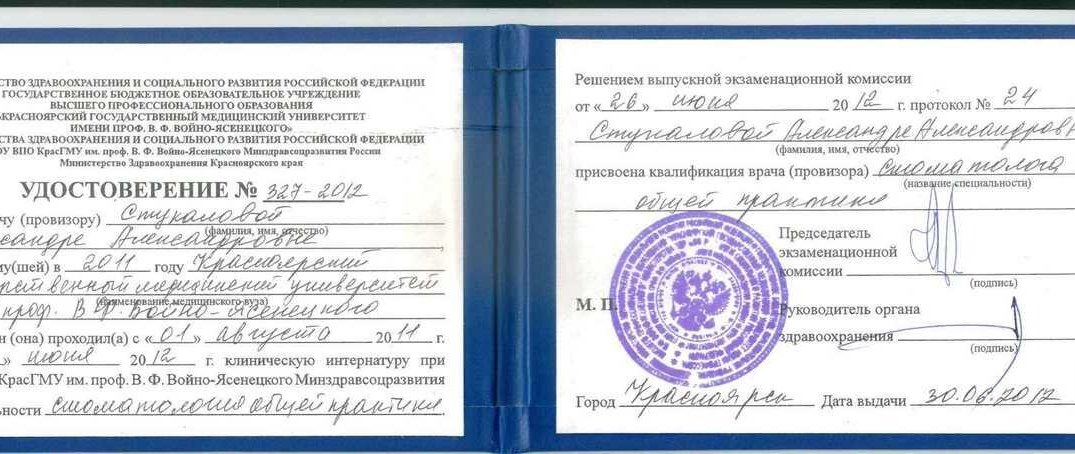 СТВО ЗДРАВООХРАНЕНИЯ И СОЦИАЛЬНОГО РАЗВИТИЯ РОССИЙСКОЙ ФЕДЕРАЦИИ
ГОСУДАРСТВЕННОЕ БЮДЖЕТНОЕ ОБРАЗОВАТЕЛЬНОЕ УЧРЕЖДЕНИЕ
ВЫСШЕГО ПРОФЕССИОНАЛЬНОГО ОБРАЗОВАНИЯ
КРАСНОЯРСКИЙ ГОСУДАРСТВЕННЫЙ МЕДИЦИНСКИЙ УНИВЕРСИТЕТ
ИМЕНИ ПРОФ. В. Ф. ВОЙНО-ЯСЕНЕЦКОГО»
СТВА ЗДРАВООХРАНЕНИЯ И СОЦИАЛЬНОГО РАЗВИТИЯ РОССИЙСКОЙ ФЕДЕРАЦИИ
ОУ ВПО КрасГМУ им. проф. В. Ф. Войно-Ясенецкого Минздравсоцразвития России
Министерство Здравоохранения Красноярского края
УДОСТОВЕРЕНИЕ № 327-2012
чу (провизору) Стукаловой
(фамилия, имя, отчество)
сандре Александровне
му(шей) в 2011 году Красноярский
рственный медицинский университет
(наименование медицинского вуза)
проф. В.Ф. Войно-Ясенецкого
н (она) проходил(а) с «01» августа 2011 г.
» июня 2012 г. клиническую интернатуру при
КрасГМУ им. проф. В. Ф. Войно-Ясенецкого Минздравсоцразвития
ьности стоматология общей практики
Решением выпускной экзаменационной комиссии
от «26» июня 2012 г. протокол № 24
Стукаловой Александре Александровн
(фамилия, имя, отчество)
присвоена квалификация врача (провизора) стоматолога
(название специальности)
общей практики
Председатель
экзаменационной
комиссии
(подпись)
М. П.
Руководитель органа
здравоохранения
(подпись)
Город Красноярск Дата выдачи 30.06.2012